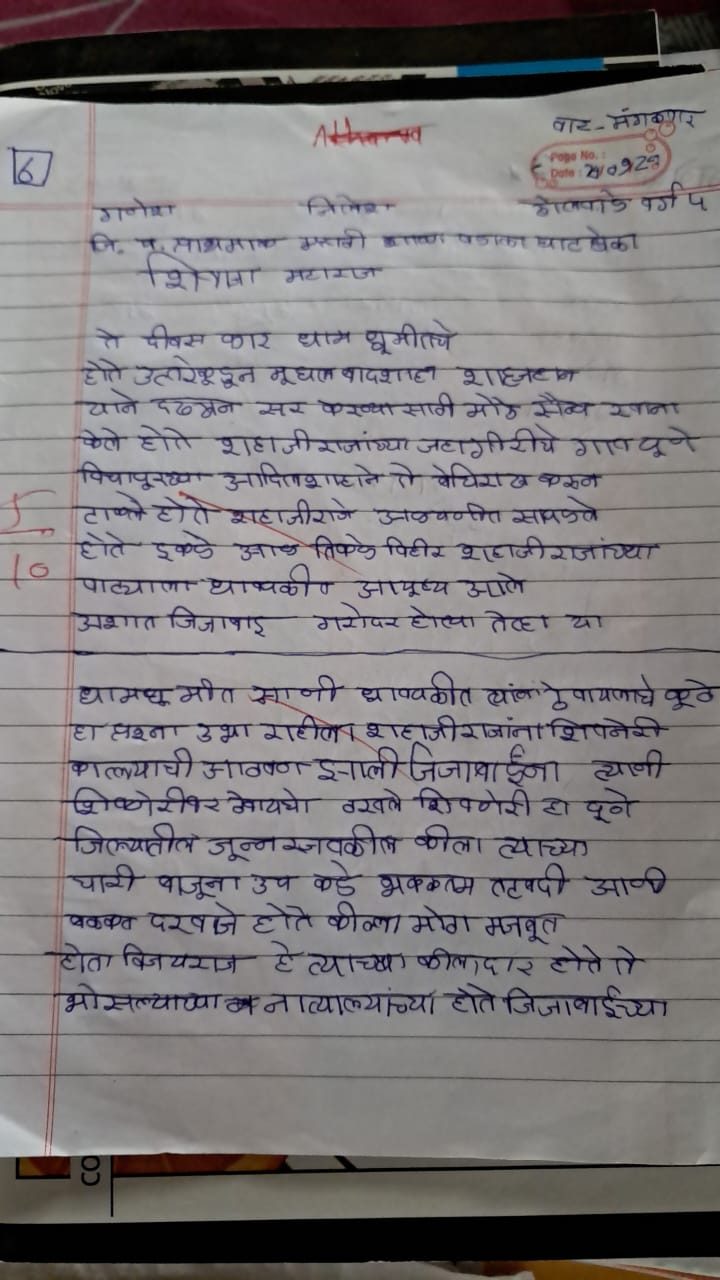 Atharva
वार - मंगळवार
6
Page No. :
Date :
गणेश निलेश ढोलवाडे वर्ग ५
जि. प. मराठी शाळा
शिवाजी महाराज
ते दीवस फार धाम धूमीतचे
होते उत्तरेकडून मूघल बादशाहा शाहजहान
याने दख्खन सर करण्या साठी मोठे सैन्य रवाना
केले होते शहाजीराजांच्या जहागीरीचे गाव पूणे
विजापूरच्या आदिलशाहाने ते बेचिराख करुन
टाकले होते शहाजीराजे अडचणीत सापडले
5
होते इकडे आड तिकडे विहीर शहाजीराजांच्या
10
वाट्याला धावपळीचे आयूष्य आले
अशात जिजाबाइ गरोदर होत्या तेव्हा या
धामधूमीत आणी धावपळीत त्यांना ठेवायाचे कूठे
हा प्रश्न उभा राहीला शहाजीराजांना शिवनेरी
काल्ल्याची आठवण झाली जिजाबाईंना त्यानी
शिवनेरीवर ठेवायचे ठरवले शिवनेरी हा पूणे
जिल्यातील जून्नरजवळील कीला त्याच्या
चारी बाजूना उच कडे भक्कम तटबंदी आणी
बळकट दरवाजे होते कील्ला मोठा मजबूत
होता विजयराज हे त्याच्या कीलादार होते ते
भोसल्याच्या नात्याल्यांच्या होते जिजाबाईच्या